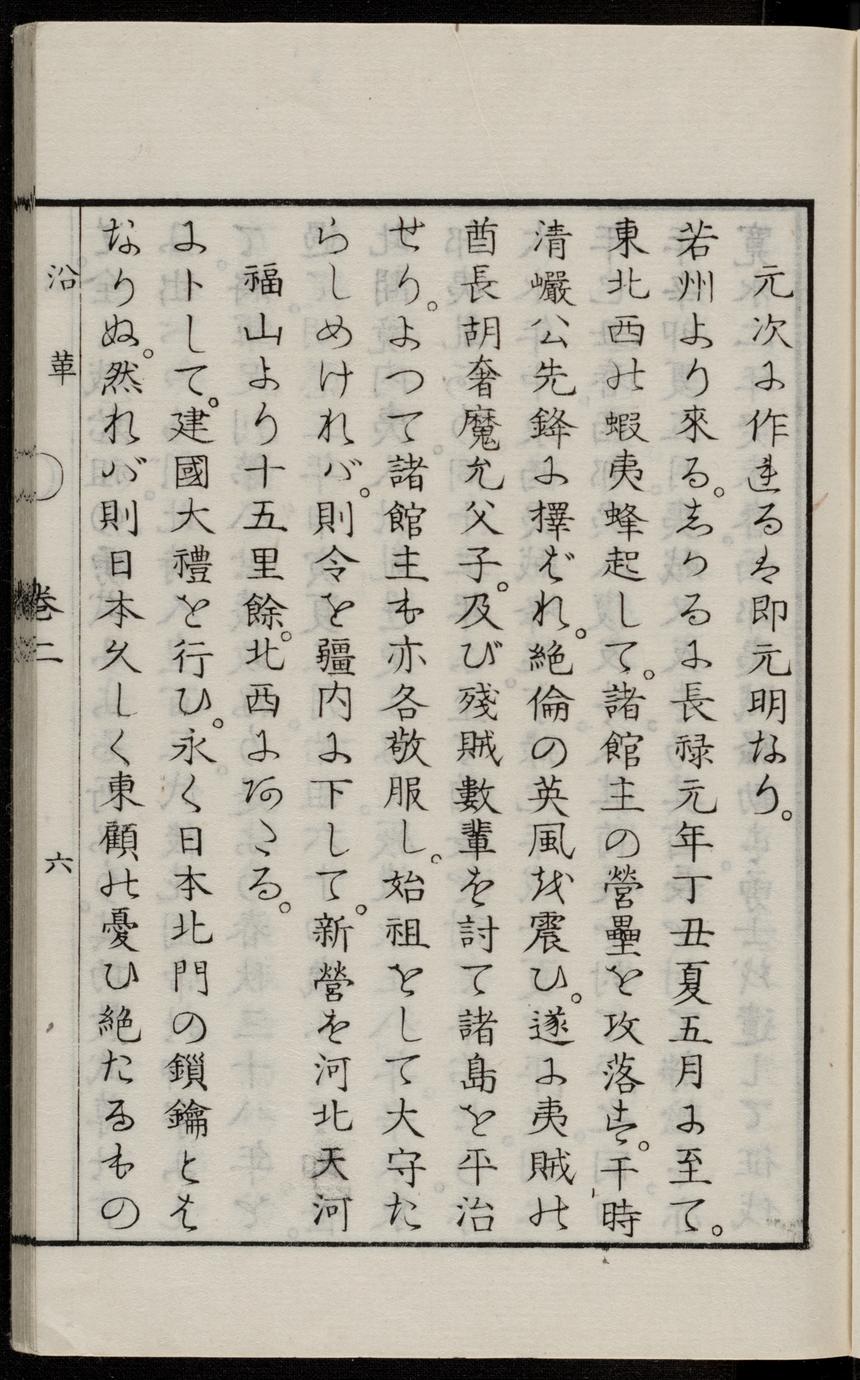 元次に作れるは即元明なり。
若州より來る。しかるに長禄元年丁丑夏五月に至て。
東北西の蝦夷蜂起して。諸館主の營壘を攻落す。于時
清巖公先鋒に擇ばれ。絶倫の英風を震ひ。遂に夷賊の
酋長胡奢魔允父子。及び殘賊數輩を討て諸島を平治
せり。よつて諸館主も亦各敬服し。始祖をして大守た
らしめければ。則令を疆内に下して。新營を河北天河
福山より十五里餘。北西にあたる。
に卜して。建國大禮を行ひ。永く日本北門の鎖鑰とは
なりぬ。然れば則日本久しく東顧の憂ひ絶たるもの
沿革 卷二 六